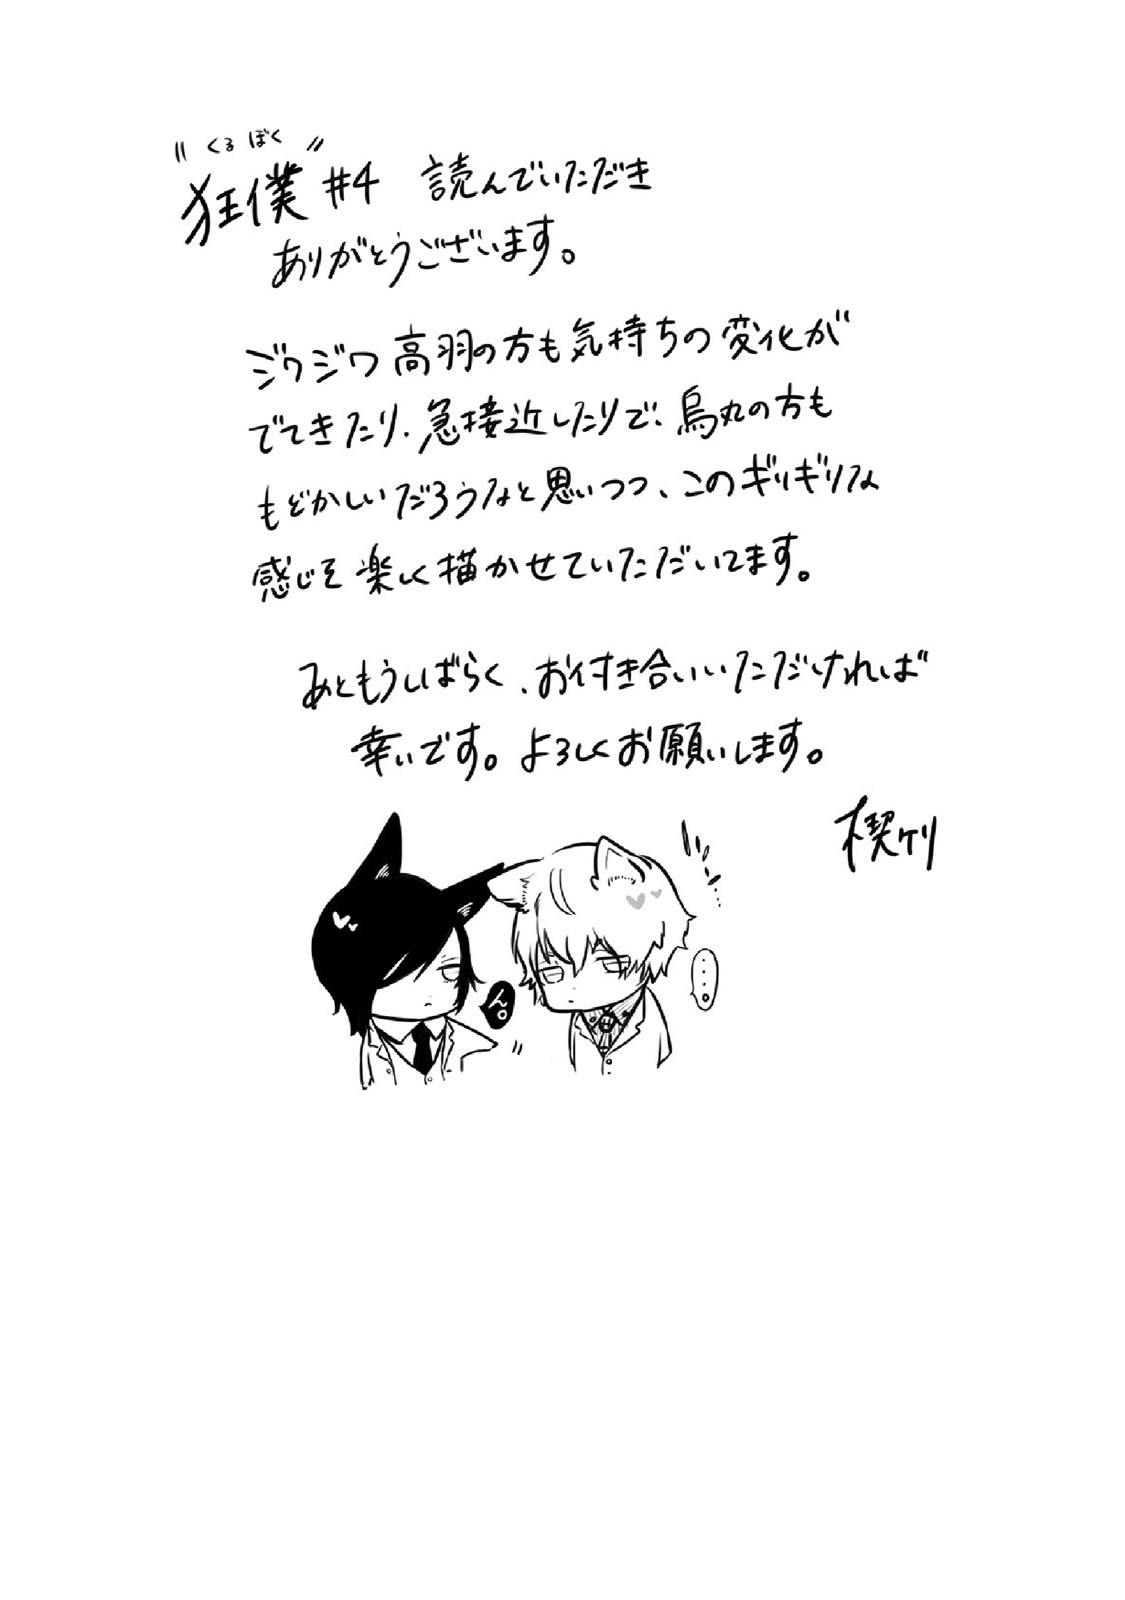 くるぼく
狂僕 #4 読んでいただき
ありがとうございます。
ジワジワ高羽の方も気持ちの変化が
でてきたり、急接近したりで、烏丸の方も
もどかしいだろうなと思いつつ、このギリギリな
感じを楽しく描かせていただいてます。
あともうしばらく、お付き合いいただければ
幸いです。よろしくお願いします。
楔ケリ
ん。
‥‥。